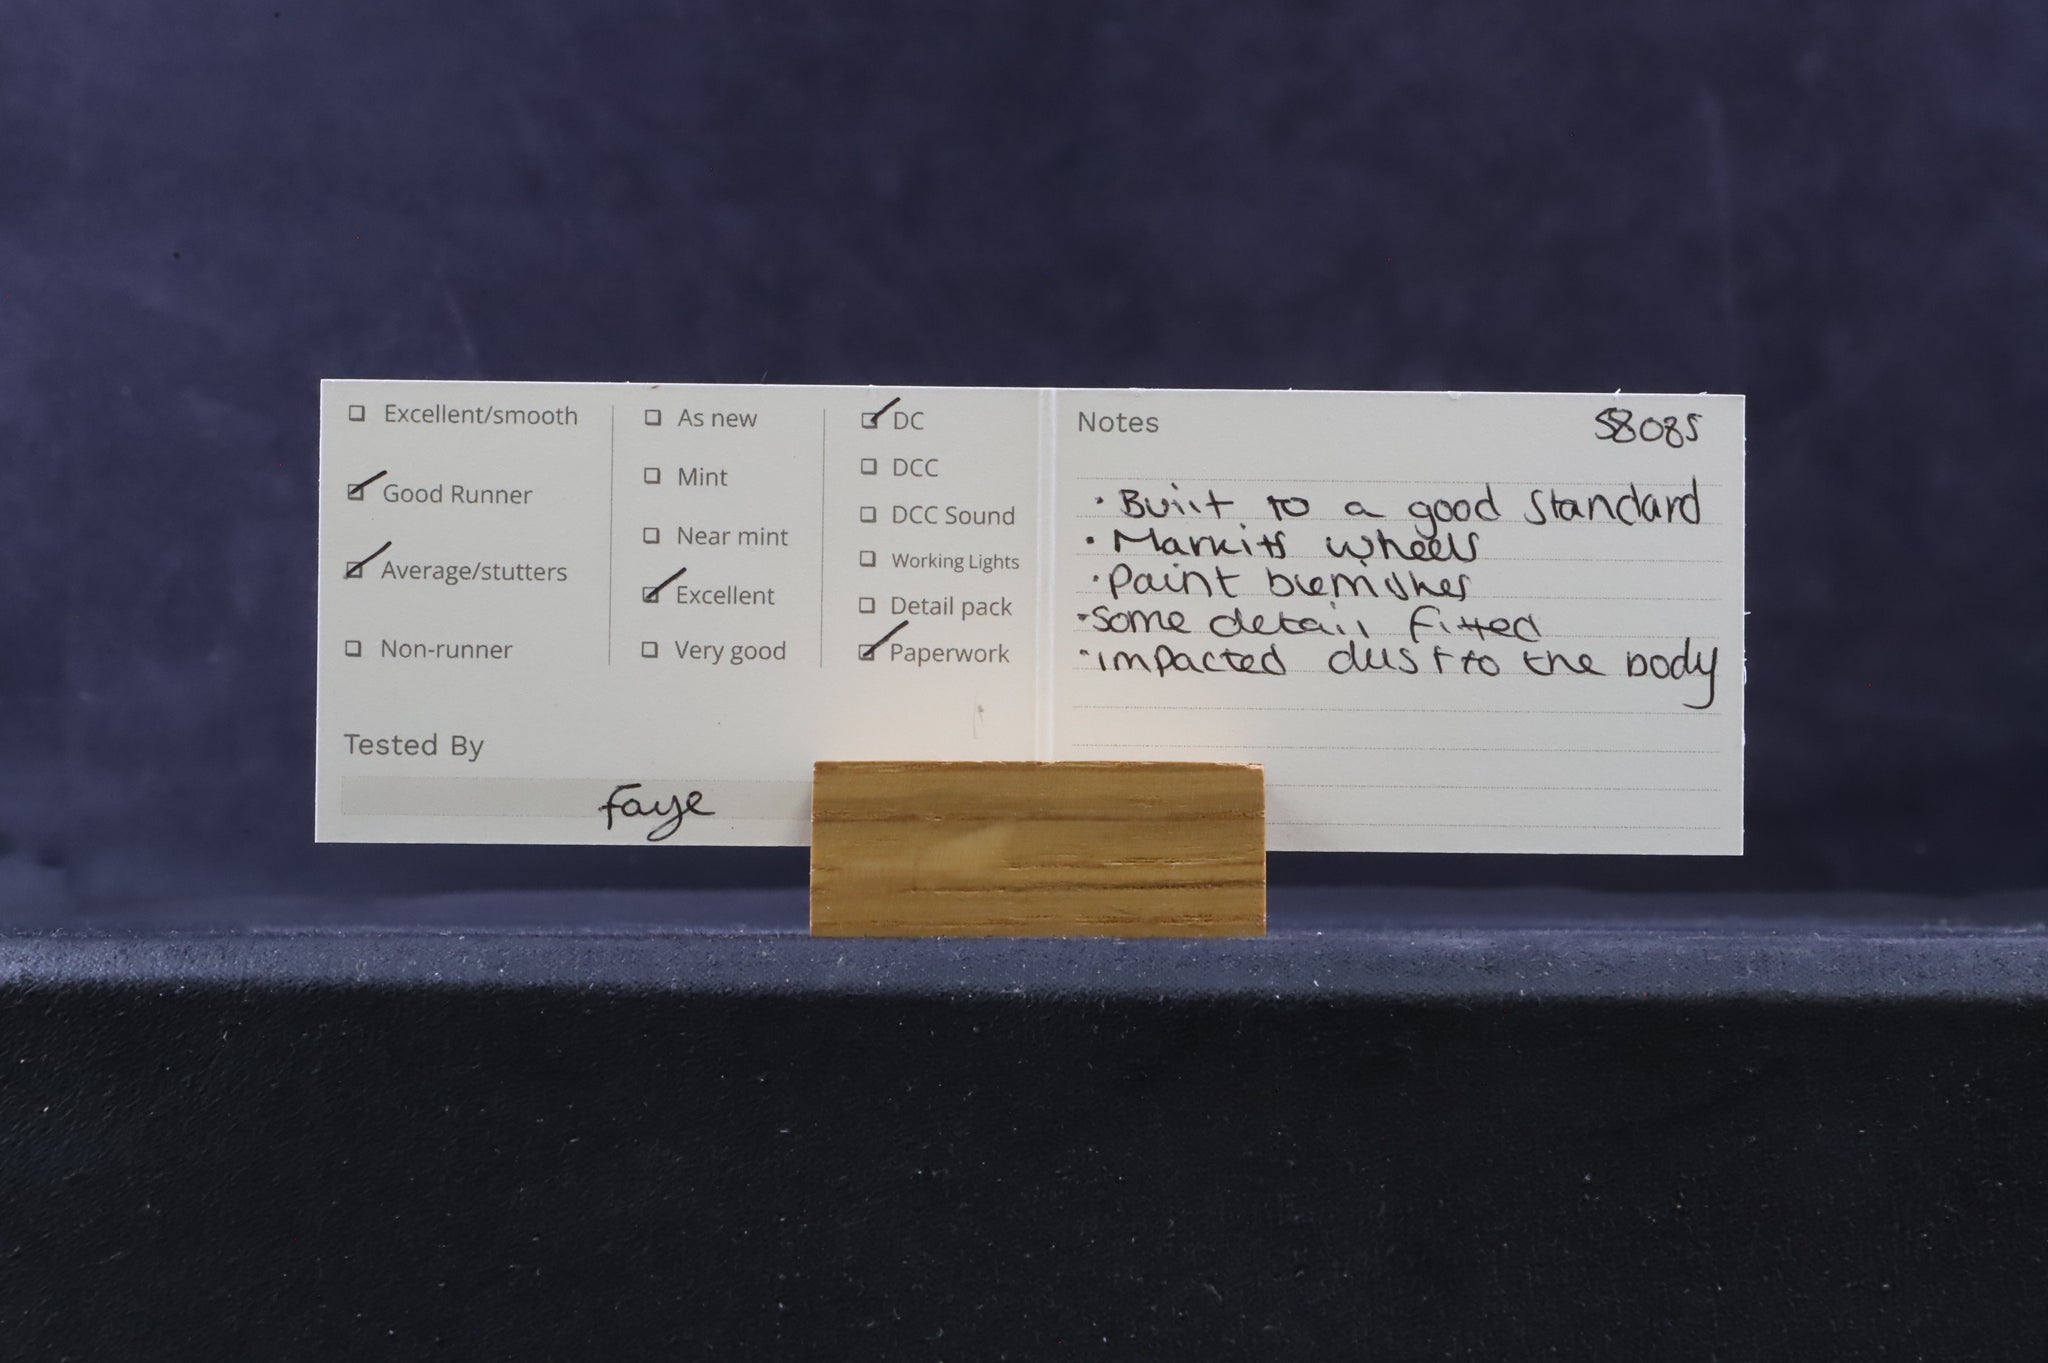 Excellent/smooth
Good Runner
Average/stutters
Non-runner
As new
Mint
Near mint
Excellent
Very good
DC
DCC
DCC Sound
Working Lights
Detail pack
Paperwork
Tested By
Faye
Notes
58085
· Built to a good standard
· Markits wheels
· Paint blemishes
· Some detail fitted
· impacted dust to the body